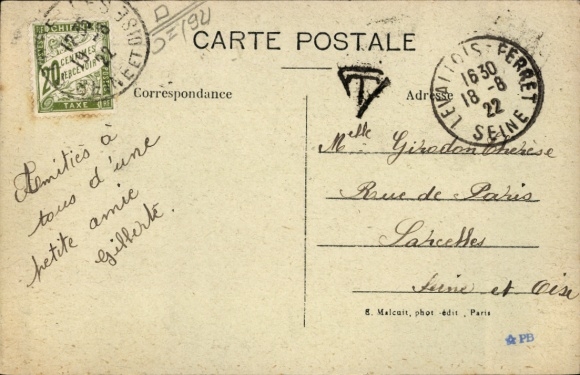 CARTE POSTALE
Correspondance
Adresse
T
LEVALLOIS-PERRET
16 30
18 -8
22
SEINE
20
CENTIMES
À PERCEVOIR
TAXE
22
Amitiés à
tous d'une
petite amie
Gilberte.
Melle Girodon Thérèse
Rue de Paris
Sarcelles
Seine et Oise
E. Malcuit, phot-édit, Paris
PB